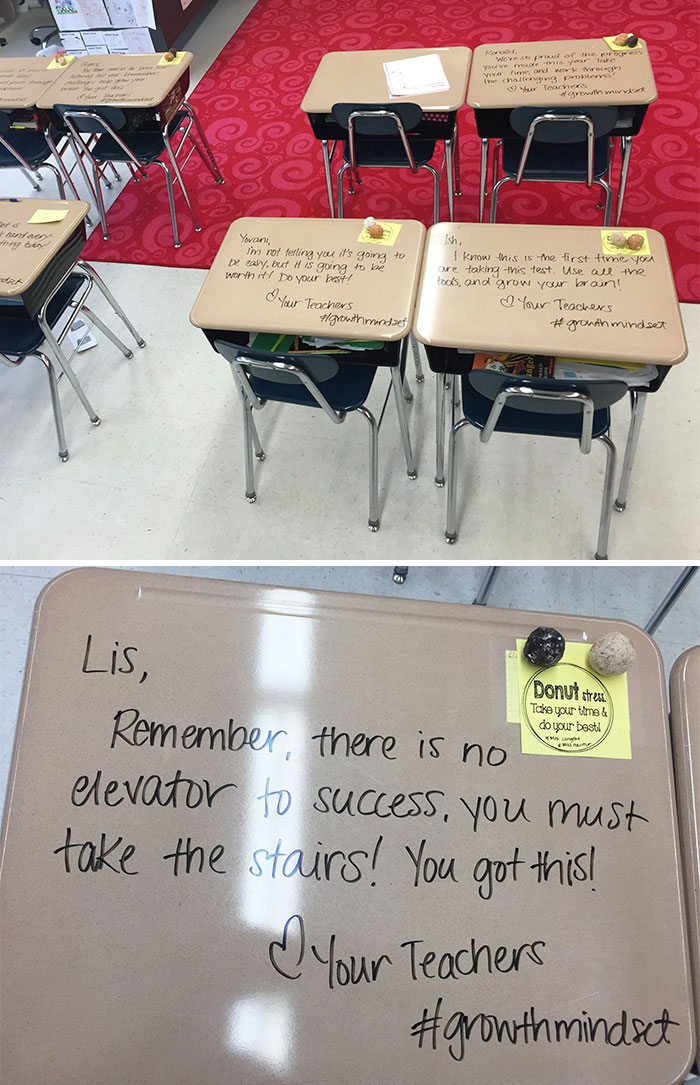 Ronald,
We're so proud of the progress
you've made this year. Take
your time, and work through
the challenging problems!
♡ Your Teachers
#growthmindset
♡ Your Teachers
#growthmindset
Yovani,
I'm not telling you it's going to
be easy, but it is going to be
worth it! Do your best!
♡ Your Teachers
#growthmindset
Ish,
I know this is the first time you
are taking this test. Use all the
tools, and grow your brain!
♡ Your Teachers
#growthmindset
Lis,
Remember, there is no
elevator to success, you must
take the stairs! You got this!
♡ Your Teachers
#growthmindset
Donut stress.
Take your time &
do your best!